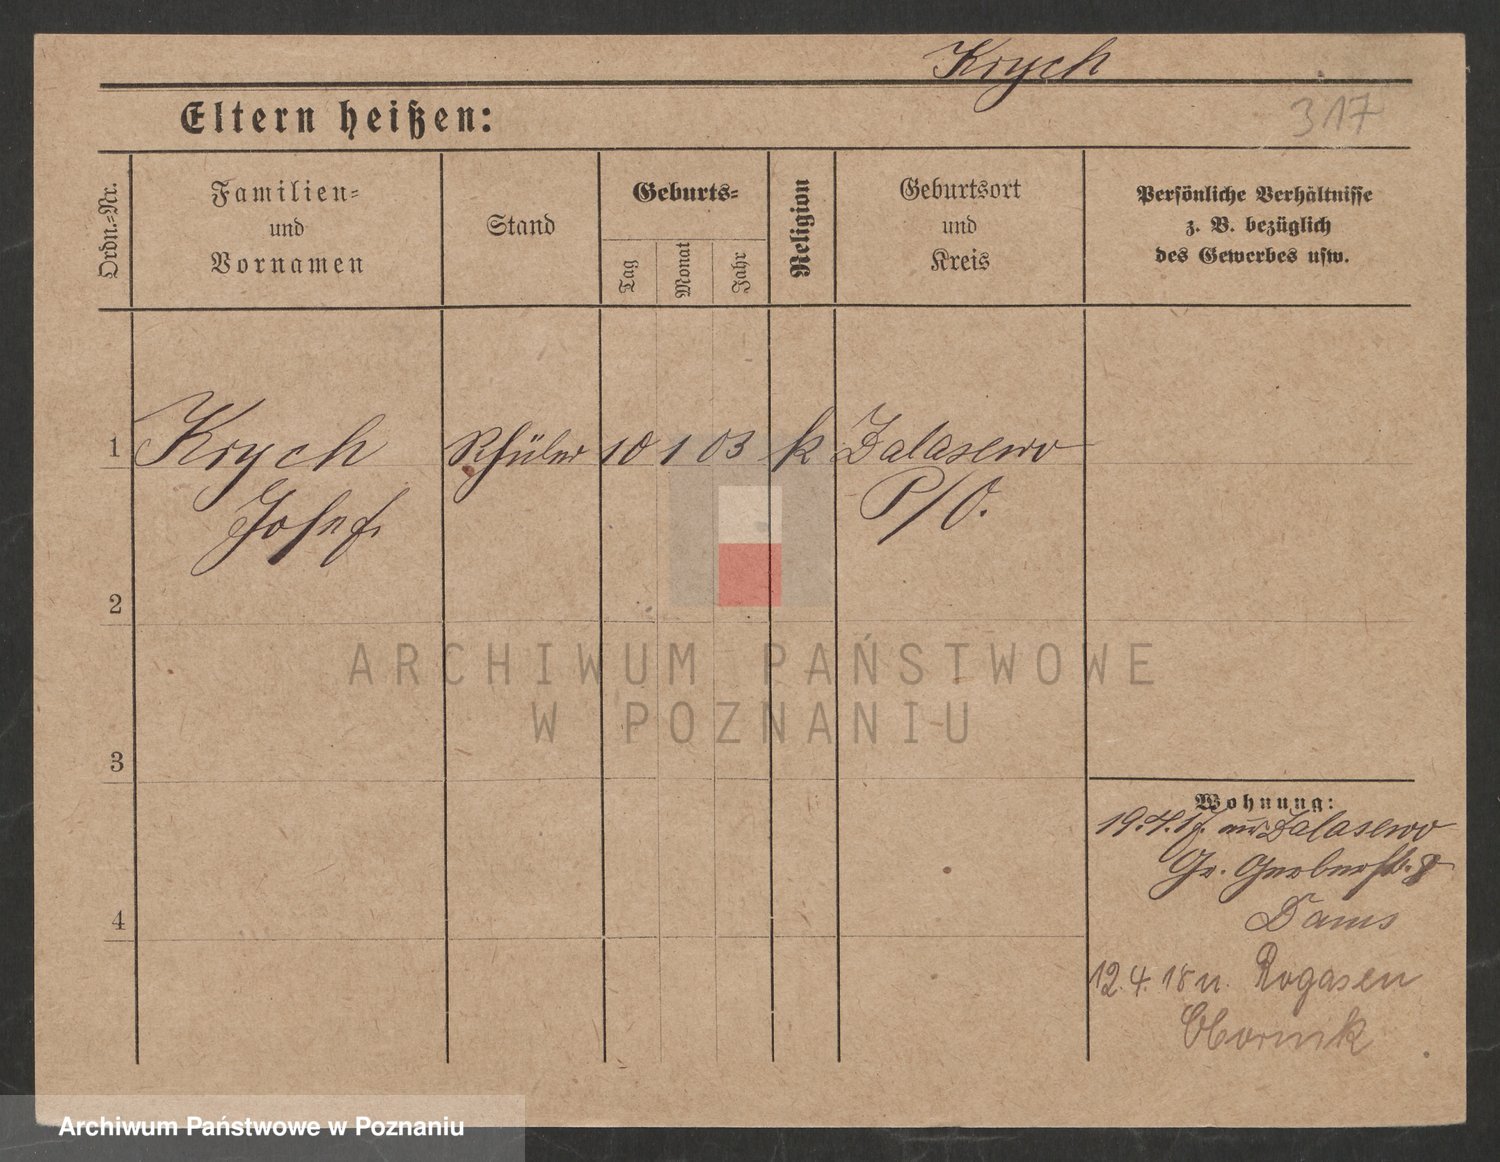 Krych
Eltern heißen:
317
Ordn.-Nr.
Familien-
und
Vornamen
Stand
Geburts-
Tag
Monat
Jahr
Religion
Geburtsort
und
Kreis
Persönliche Verhältnisse
z. B. bezüglich
des Gewerbes usw.
1 Krych Schüler 10 1 03 k Zalasewo
Josef. P/O.
2
ARCHIWUM PAŃSTWOWE
W POZNANIU
3
Wohnung:
19.4.17. aus Zalasewo
Gr. Gerberstr. 8
Dams
4
12.4.18 n. Rogasen
Obornik
Archiwum Państwowe w Poznaniu